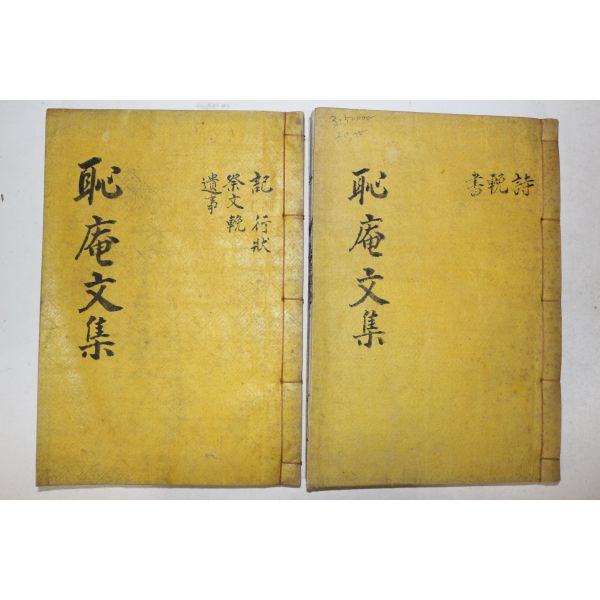 恥庵文集
記 行狀
祭文 輓
遺事
恥庵文集
詩
輓
書